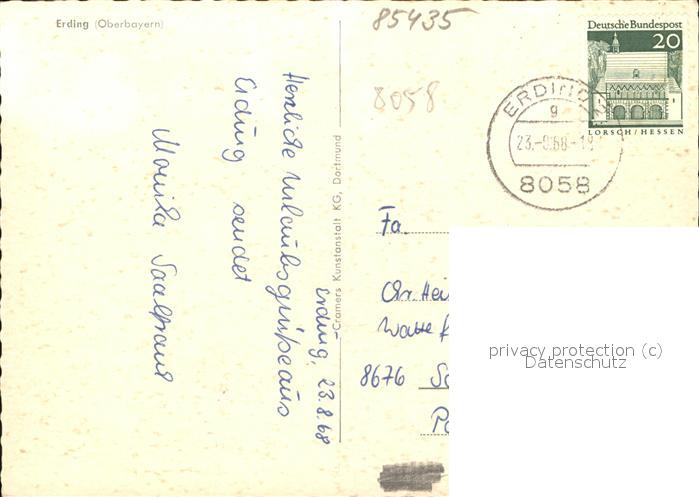 Erding (Oberbayern)
85435
8058
Deutsche Bundespost
20
LORSCH/HESSEN
ERDING
g
23.-8.68-19
8058
Cramers Kunstanstalt KG, Dortmund
Erding, 23.8.68
Herzliche Urlaubsgrüße aus
Erding sendet
Monika
Fa.
Chr. Hei
8676
privacy protection (c)
Datenschutz